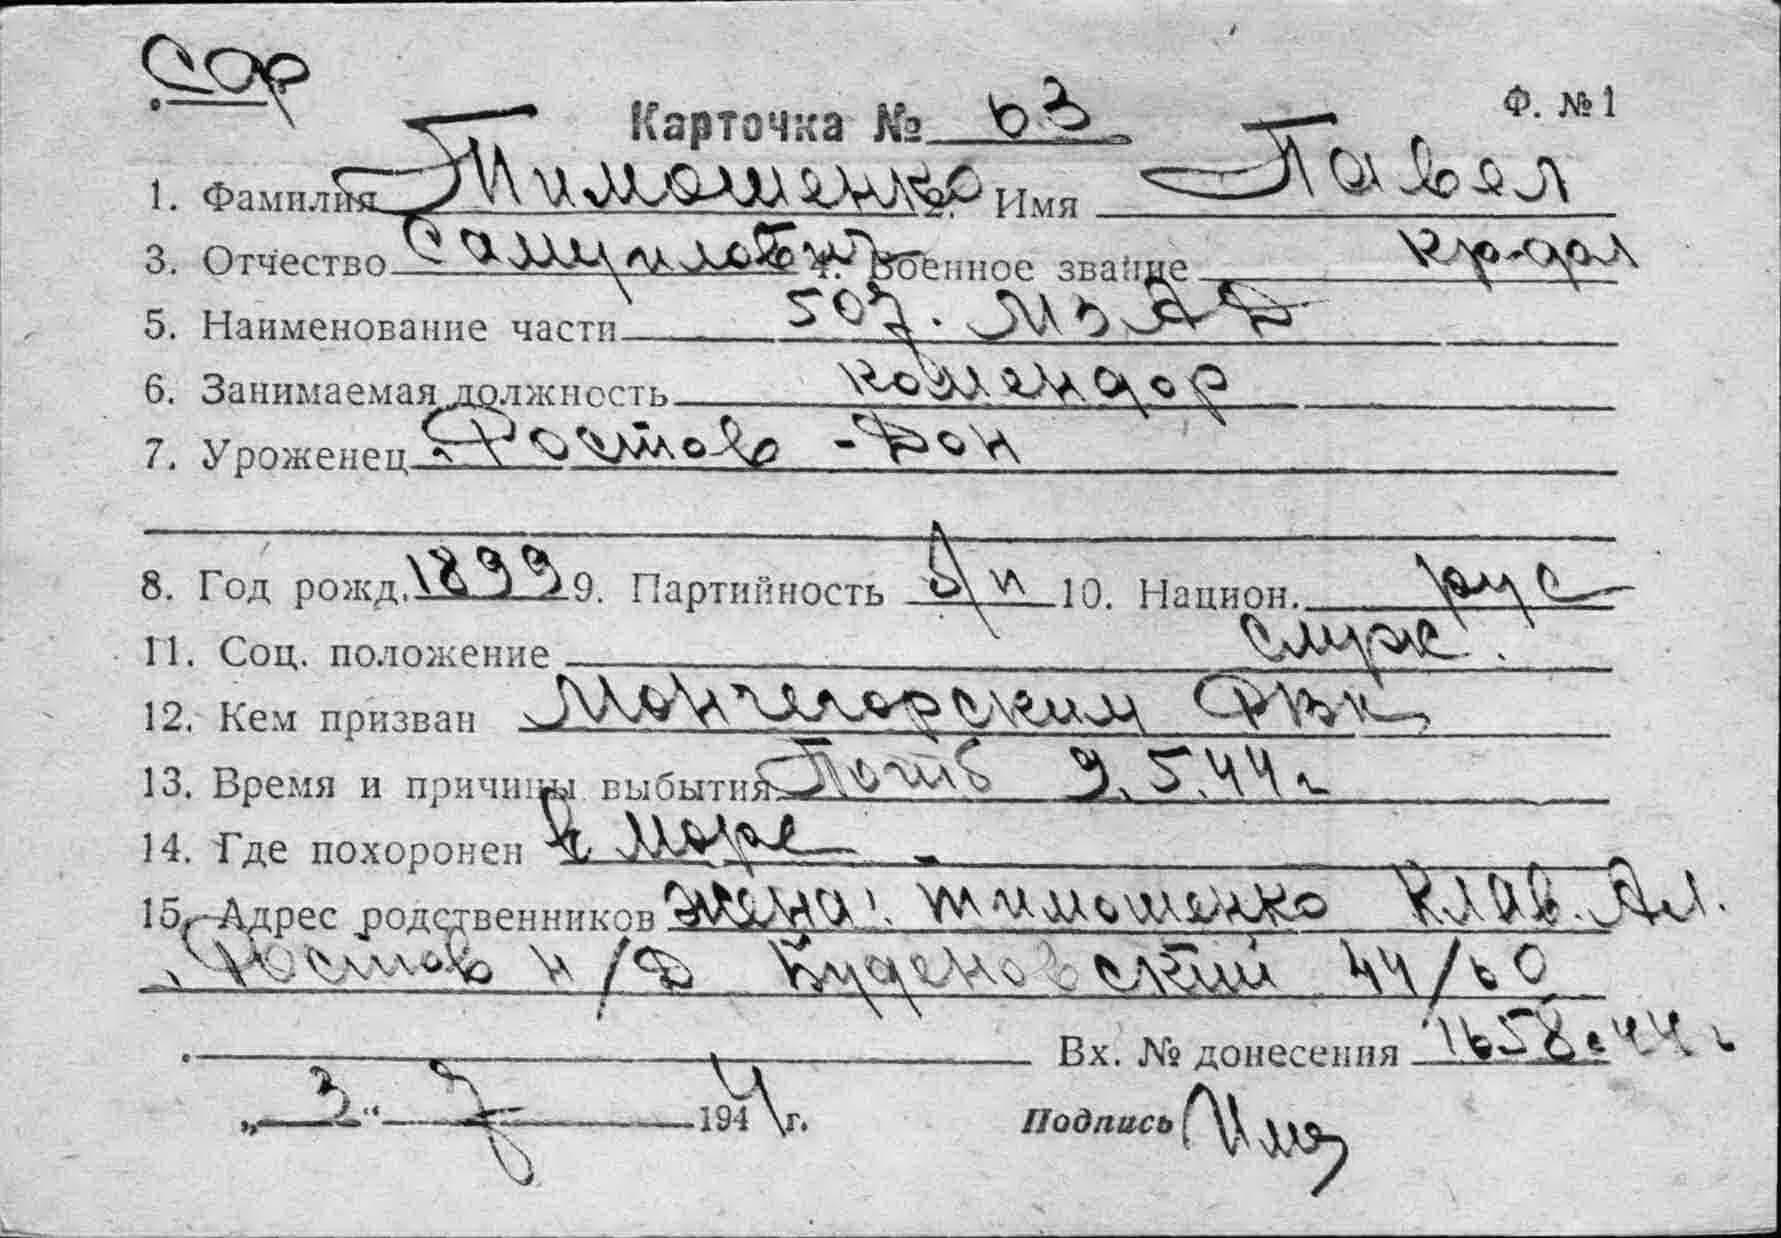 Сар
Карточка № 63 Ф. № 1
1. Фамилия Тимошенко 2. Имя Павел
3. Отчество Самуилович 4. Военное звание кр-фл
5. Наименование части 507. МЗАД
6. Занимаемая должность комендор
7. Уроженец Ростов-Дон
8. Год рожд. 1899 9. Партийность б/п 10. Национ. рус
11. Соц. положение служ.
12. Кем призван Мончегорским РВК
13. Время и причины выбытия Погиб 9.5.44 г
14. Где похоронен в море
15. Адрес родственников жена: Тимошенко Клав. Ал.
Ростов н/Д Буденовский 44/60
Вх. № донесения 1658с 44 г
„3“ 7 1944 г. Подпись